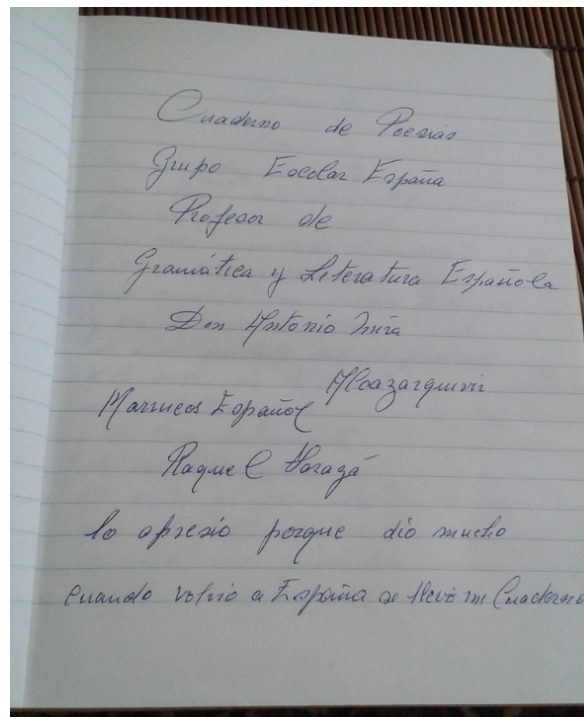 Cuaderno de Poesias
Grupo Escolar España
Profesor de
Gramática y Literatura Española
Don Antonio
Alcazarquivir
Marruecos Español
Raquel
lo apresio porque dió mucho
cuando volvio a España se llevó mi Cuaderno